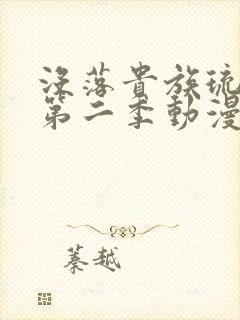 没落貴族琉
第二季動漫
蓁越